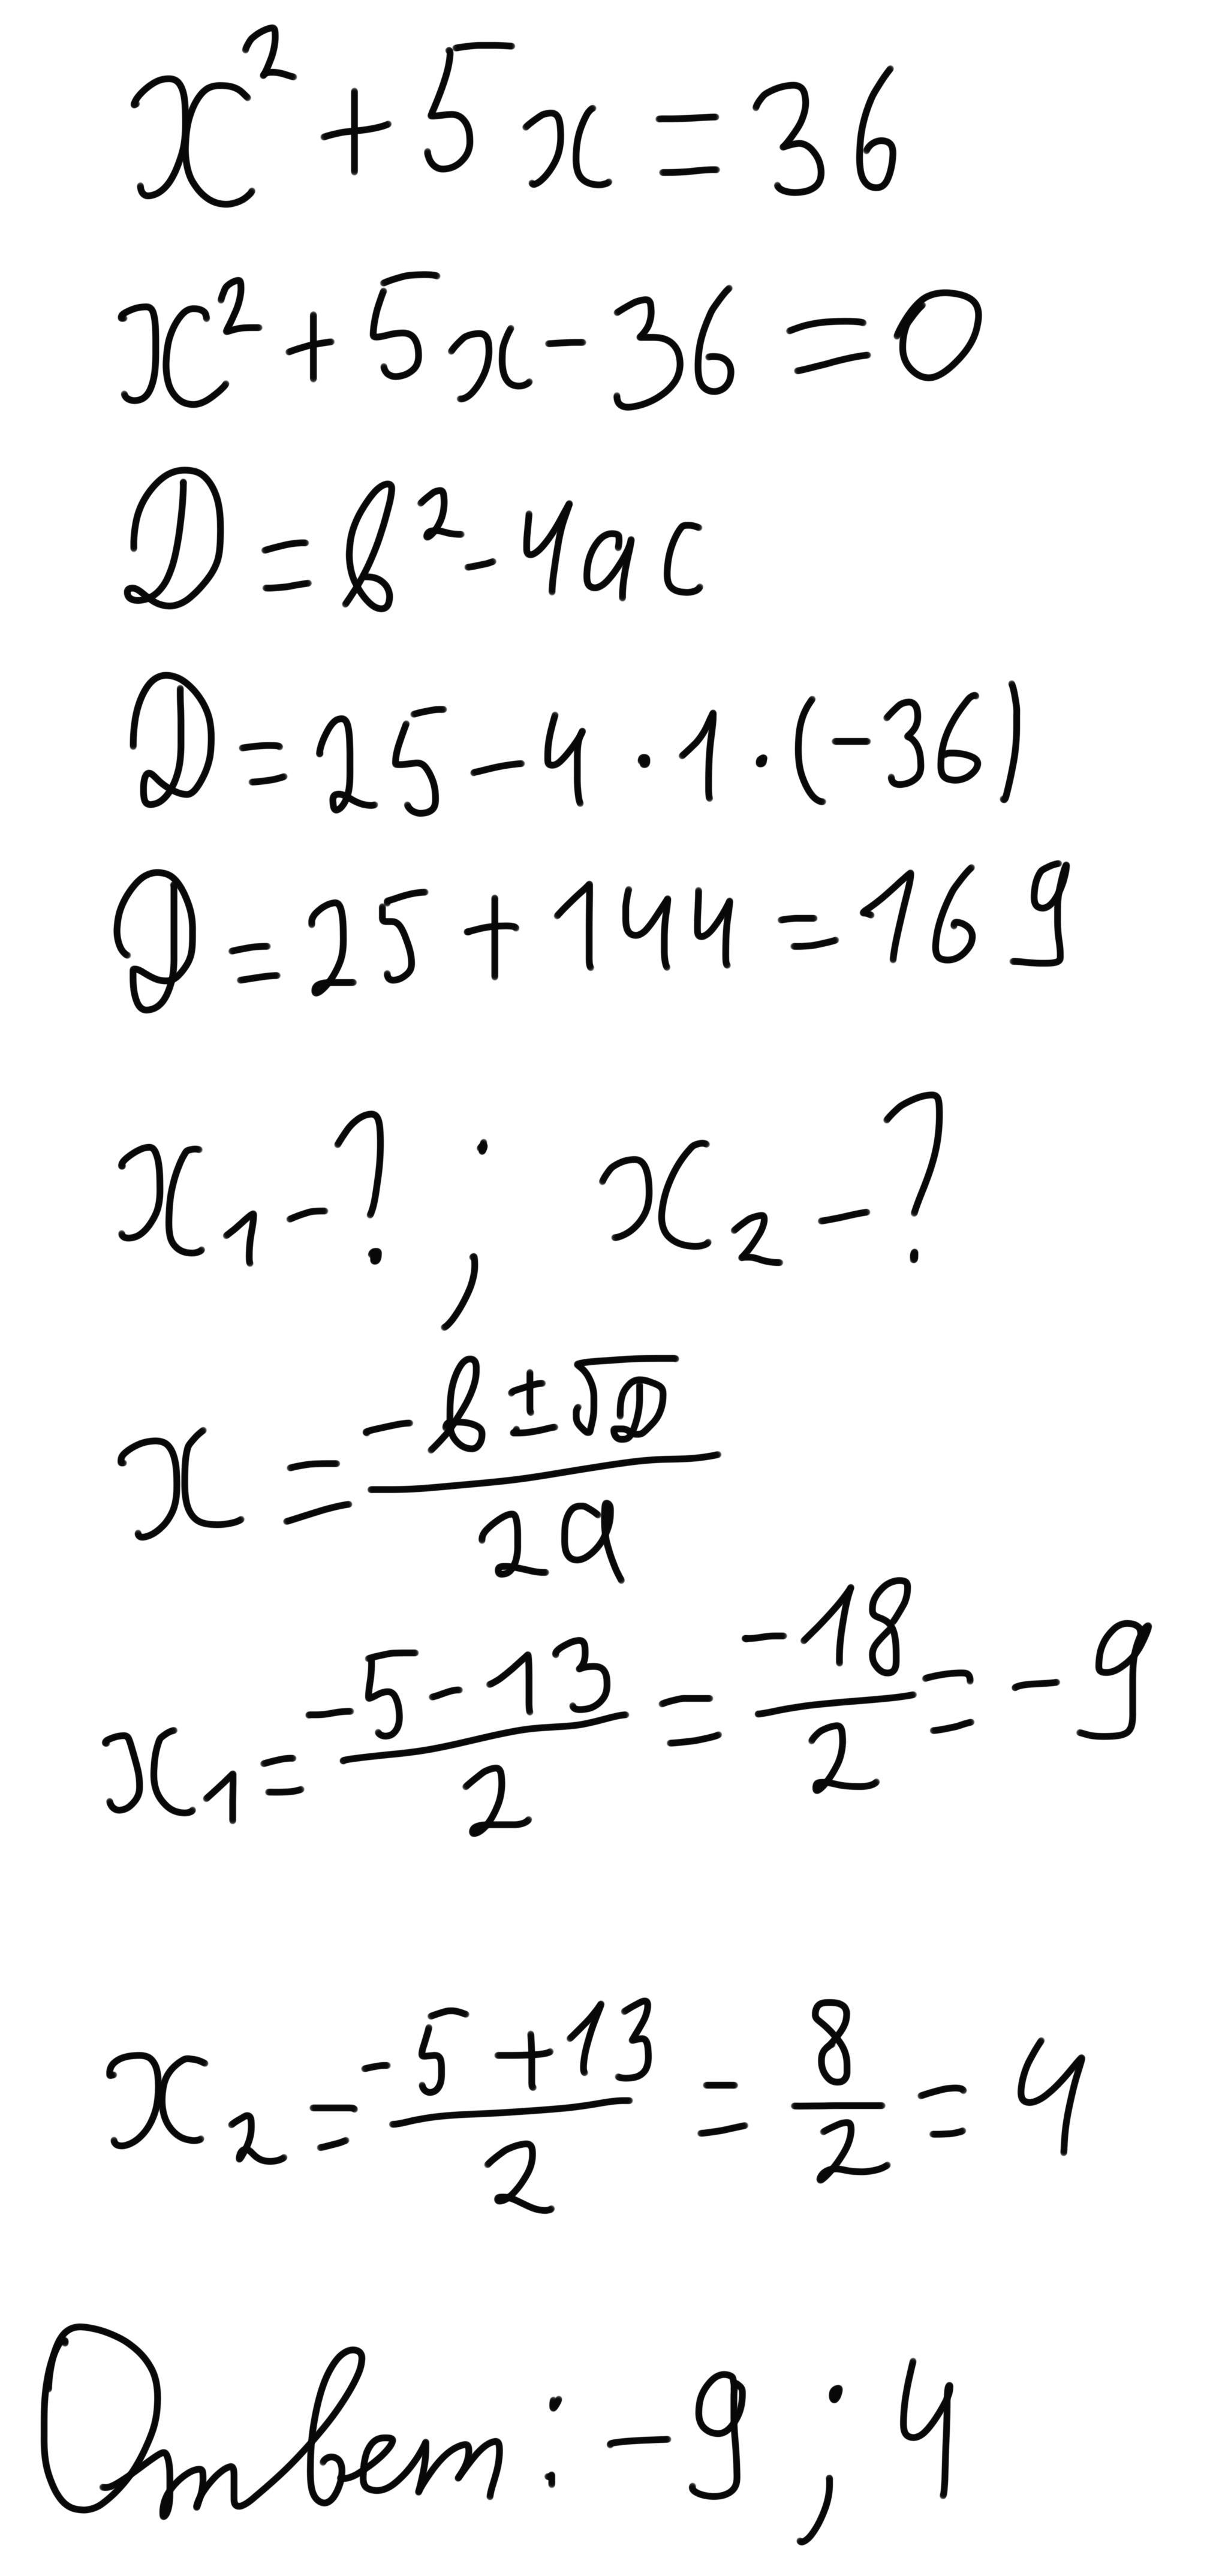 x² + 5x = 36
x² + 5x - 36 = 0
D = b² - 4ac
D = 25 - 4 · 1 · (-36)
D = 25 + 144 = 169
x₁ - ? ; x₂ - ?
x = (-b ± √D) / 2a
x₁ = (-5 - 13) / 2 = -18 / 2 = -9
x₂ = (-5 + 13) / 2 = 8 / 2 = 4
Ответ: -9 ; 4